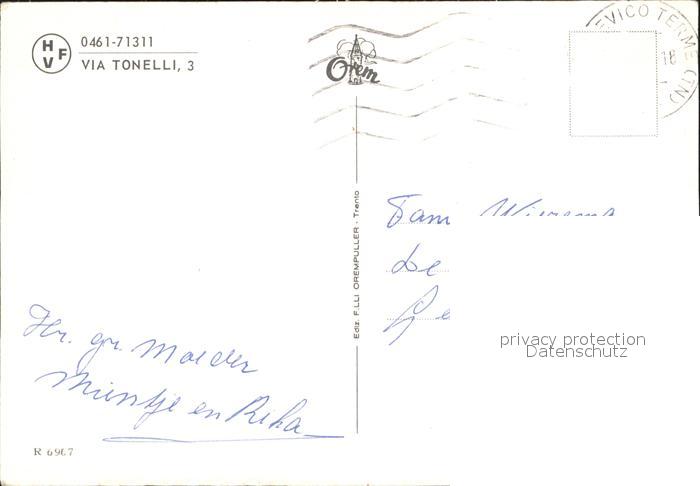 HVF
0461-71311
VIA TONELLI, 3
Orem
EVICO TERME (TN)
18
Ediz. F.LLI OREMPULLER - Trento
Fam
De
Ge
privacy protection
Datenschutz
Hr. gr. Moeder
Mientje en Rika
R 6967